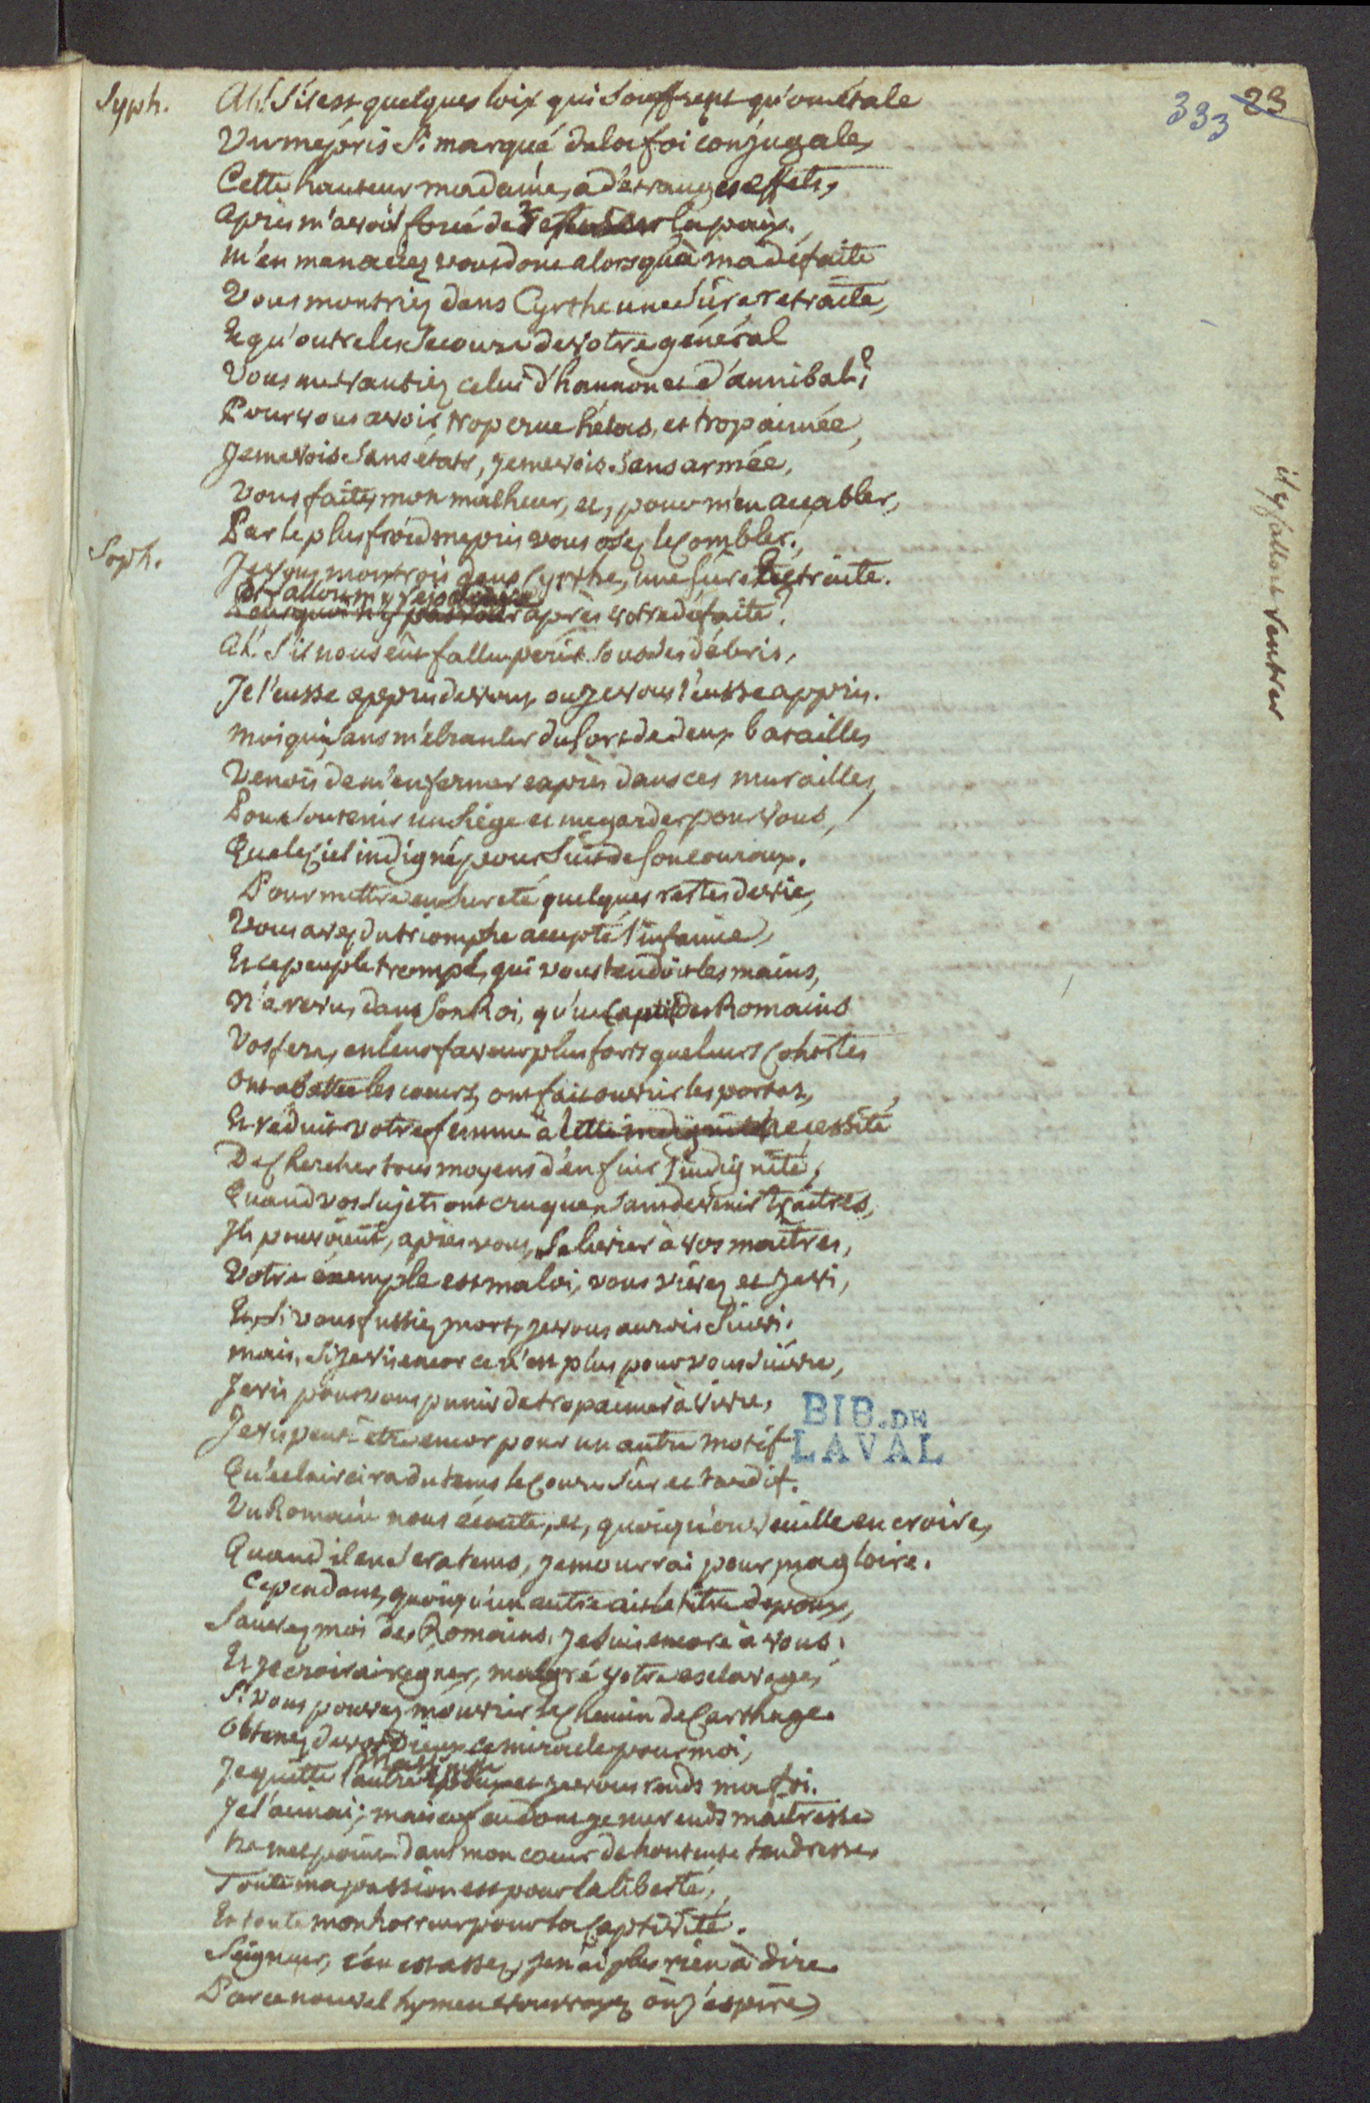 333 23
Syph. Ah! S'il est quelques loix qui souffrent qu'on étale
Un mépris si marqué de la foi conjugale,
Cette hauteur madame, a d'étranges effets,
Après m'avoir forcé de refuser la paix.
M'en menaciez vous donc alors qu'à ma défaite
Vous montriez dans Cyrthe une sûre retraite,
Et qu'outre le secours de votre général
Vous me vantiez celui d'hannon et d'annibal?
Pour vous avoir trop crue hélas, et trop aimée,
Je me vois sans états, je me vois sans armée,
Vous faites mon malheur, et, pour m'en accabler,
Par le plus froid mepris vous osez le combler.
Soph. Je vous montrois dans Cyrthe, une sûre retraite.
Il falloit m'y rejoindre
Pourquoi n'y pas voler après votre défaite?
Ah! S'il nous eût fallu périr sous des débris,
Je l'eusse appris de vous ou je vous l'eusse appris.
Moi qui, sans m'ébranler du sort de deux batailles
Venois de m'enfermer exprès dans ces murailles,
Pour soutenir un siége et me garder pour vous,
Que le Ciel indigné poursuit de son couroux.
Pour mettre en sureté quelques restes de vie,
Vous avez du triomphe accepté l'infamie,
Et ce peuple trompé, qui vous tendoit les mains,
N'a revu, dans son Roi, qu'un captif des Romains
Vos fers, en leur faveur plus forts que leurs Cohortes
Ont abattu les coeurs, ont fait ouvrir les portes,
Et réduit votre femme à cette indigne necessité
De chercher tous moyens d'en fuir l'indignité,
Quand vos sujets ont cru que, sans devenir traîtres,
Ils pouvoient, après vous, se livrer à vos maîtres,
Votre éxemple est ma loi, vous vivez et je vi,
Et, si vous fussiez mort, je vous aurois suivi.
mais, si je vis encor ce n'est plus pour vous suivre,
Je vis pour vous punir de trop aimer à vivre,
Je vis peut-être encor pour un autre motif
Qu'eclaircira du tems le cours sûr et tardif.
Un Romain nous écoute, et, quoiqu'on veuille en croire,
Quand il en sera tems, je mourrai pour ma gloire.
Cependant, quoiqu'un autre ait le titre d'epoux,
Sauvez moi des Romains, je suis encore à vous,
Et je croirai régner, malgré votre esclavage,
Si vous pouvez m'ouvrir le chemin de Carthage.
Obtenez de vos Dieux ce miracle pour moi,
Massinisse
Je quitte l'autre époux et je vous rends ma foi.
Je l'aimai; mais ce feu dont je me rends maitresse
Ne met point dans mon coeur de honteuse tendresse,
Toute ma passion est pour la liberté,
Et toute mon horreur pour la Captivité.
Seigneur, c'en est assez, je n'ai plus rien à dire
Par ce nouvel hymen vous voyez où j'aspire
il y falloit rentrer
BIB. DE
LAVAL